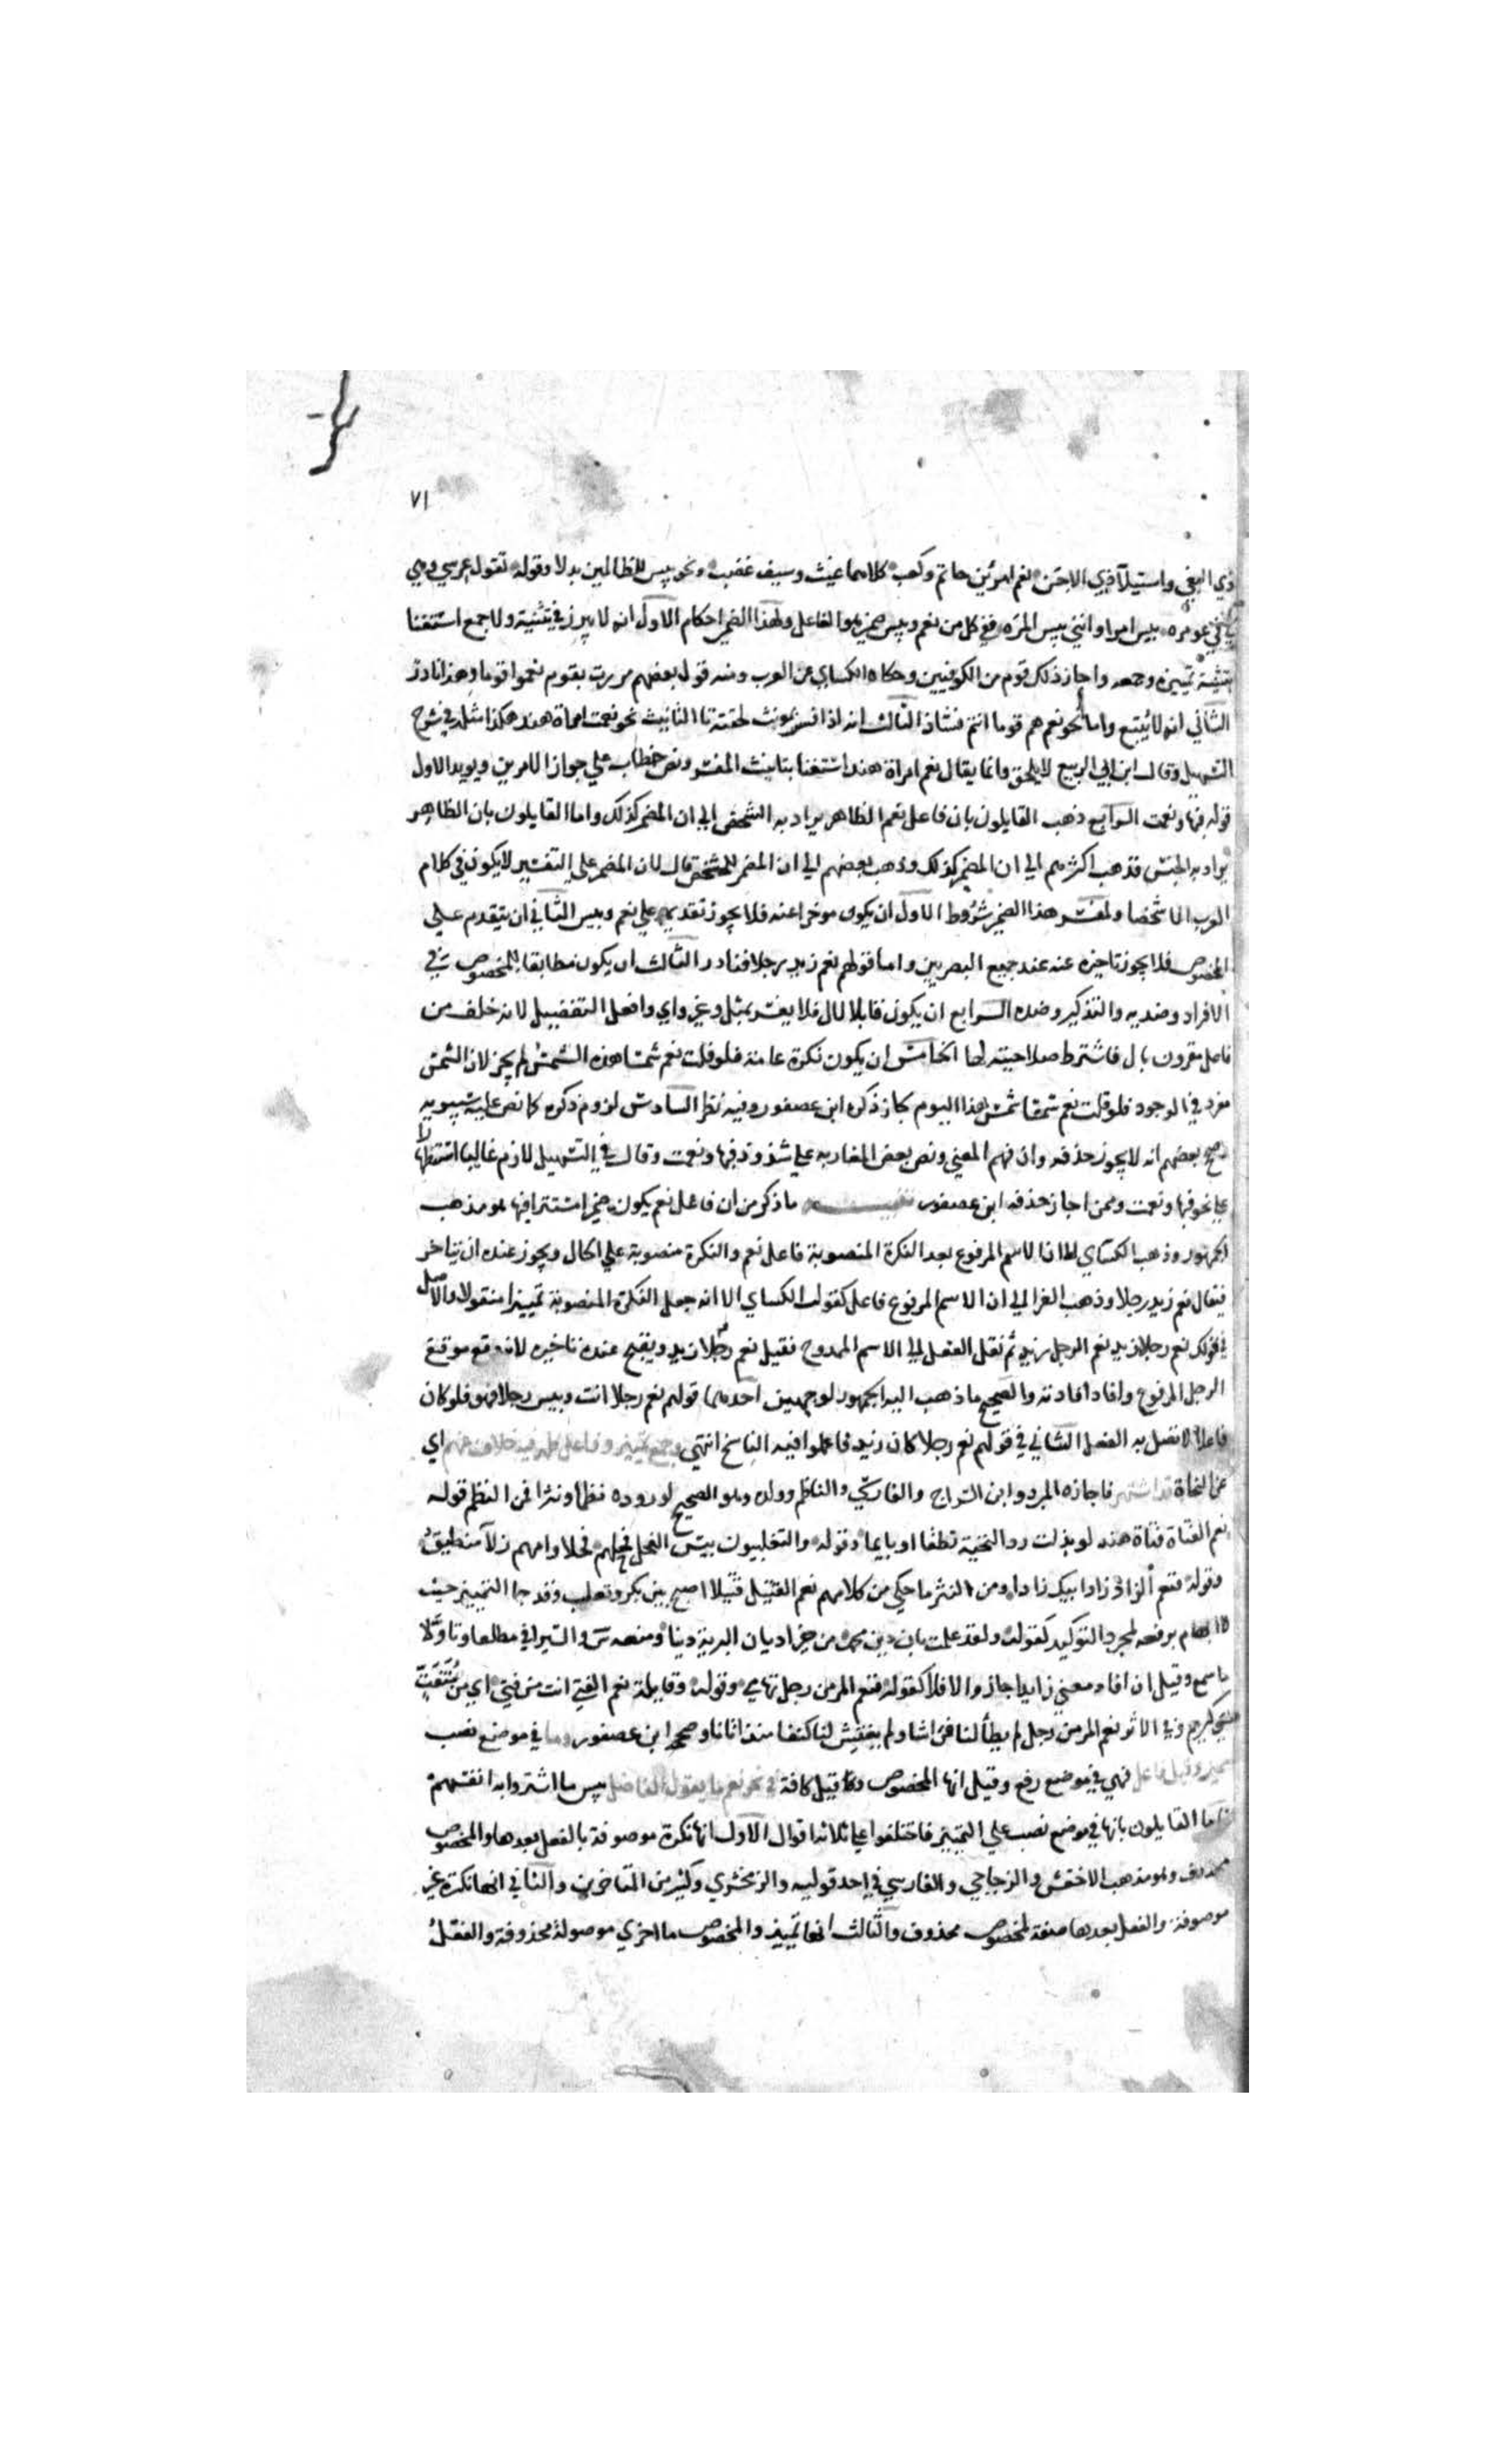 ٧١
ذي البغي واستيلآ ذي الاحن نعم امرئين حاتم وكعب كلاهما غيث وسيف عضب ونحو بيس للظالمين بدلا وقوله تقول عرسي وهي
لي في عومره بيس امرا وانني بيس المره ففي كل من نعم وبيس ضمير هو الفاعل ولهذا الضمير احكام الاول انه لا يبرز في تثنية ولا جمع استغنا
بتثنية تمييزه وجمعه واجاز ذلك قوم من الكوفيين وحكاه الكساي عن العرب ومنه قول بعضهم مررت بقوم نعموا قوما وهذا نادر
الثاني انه لا يتبع واما نحو نعم هم قوما انتم فشاذ الثالث انه اذا فسر بمونث لحقته تا التانيث نحو نعمت امراة هند هكذا مثله في شرح
التسهيل وقال ابن ابي الربيع لا يلحق وانما يقال نعم امراة هند استغنا بتانيث المفسر ونص خطاب علي جواز الامرين ويويد الاول
قوله فبها ونعمت الرابع ذهب القايلون بان فاعل نعم الظاهر يراد به الشخص الي ان المضمر كذلك واما القايلون بان الظاهر
يراد به الجنس فذهب اكثرهم الي ان المضمر كذلك وذهب بعضهم الي ان المضمر للشخص قال لان المضمر علي التفسير لا يكون في كلام
العرب الا شخصا ولمفسر هذا الضمير شروط الاول ان يكون موخرا عنه فلا يجوز تقديمه علي نعم وبيس الثاني ان يتقدم علي
المخصوص فلا يجوز تاخيره عنه عند جميع البصريين واما قولهم نعم زيد رجلا فنادر الثالث ان يكون مطابقا للمخصوص في
الافراد وضديه والتذكير وضده الرابع ان يكون قابلا لال فلا يفسر بمثل وغير واي وافعل التفضيل لانه خلف من
فاعل مقرون بال فاشترط صلاحيته لها الخامس ان يكون نكرة عامة فلو قلت نعم شمسا هذه الشمس لم يجز لان الشمس
مفرد في الوجود فلو قلت نعم شمسا شمس هذا اليوم لجاز ذكره ابن عصفور وفيه نظر السادس لزوم ذكره كما نص عليه سيبويه
وصحح بعضهم انه لا يجوز حذفه وان فهم المعني ونص بعض المغاربه علي شذوذ فبها ونعمت وقال في التسهيل لازم غالبا استظهارا
علي نحو فبها ونعمت وممن اجاز حذفه ابن عصفور تنبيه ما ذكر من ان فاعل نعم يكون ضميرا مستترا فيها هو مذهب
الجمهور وذهب الكساي الي ان الاسم المرفوع بعد النكرة المنصوبة فاعل نعم والنكرة منصوبة علي الحال ويجوز عنده ان يتاخر
فيقال نعم زيد رجلا وذهب الفرا الي ان الاسم المرفوع فاعل كقول الكساي الا انه جعل النكرة المنصوبة تمييزا منقولا والاصل
في قولك نعم رجلا زيد نعم الرجل زيد ثم نقل الفعل الي الاسم الممدوح فقيل نعم رجلا زيد ويقبح عنده تاخيره لانه وقع موقع
الرجل المرفوع وافاد افادته والصحيح ما ذهب اليه الجمهور لوجهين احدهما قولهم نعم رجلا انت وبيس رجلا هو فلو كان
فاعلا لاتصل به الفعل الثاني في قولهم نعم رجلا كان زيد فاعملوا فيه الناسخ انتهي وجمع تمييز وفاعل ظهر فيه خلاف عنهم اي
عن النحاة قد اشتهر فاجازه المبرد وابن السراج والفارسي والناظم وولده وهو الصحيح لوروده نظما ونثرا فمن النظم قوله
نعم الفتاة فتاة هند لو بذلت رد التحية نطقا او بايما وقوله والتغلبيون بيس الفحل فحلهم فحلا وامهم زلآ منطيق
وقوله فنعم الزاد زاد ابيك زادا ومن النثر ما حكي من كلامهم نعم القتيل قتيلا اصلح بين بكر وتغلب وقد جا التمييز حيث
لا ابهام يرفعه لمجرد التوكيد كقوله ولقد علمت بان دين محمد من خير اديان البرية دينا ومنعه س والسيرافي مطلقا وتاولا
ما سمع وقيل ان افاد معني زايدا جاز والا فلا كقوله فنعم المر من رجل تهامي وقوله وقايلة نعم الفتي انت من فتي اي من متفت
اي كريم وفي الاثر نعم المر من رجل لم يطأ لنا فراشا ولم يفتش لنا كنفا منذ اتانا وصححه ابن عصفور وما في موضع نصب
مميز وقيل فاعل فهي في موضع رفع وقيل انها المخصوص وقيل كافة في نحو نعم ما يقول الفاضل بيس ما اشتروا به انفسهم
فاما القايلون بانها في موضع نصب علي التمييز فاختلفوا علي ثلاثة اقوال الاول انها نكرة موصوفة بالفعل بعدها والمخصوص
محذوف وهو مذهب الاخفش والزجاجي والفارسي في احد قوليه والزمخشري وكثير من المتاخرين والثاني انها نكرة غير
موصوفة والفعل بعدها صفة لمخصوص محذوف والثالث انها تمييز والمخصوص ما اخري موصولة محذوفة والفعل